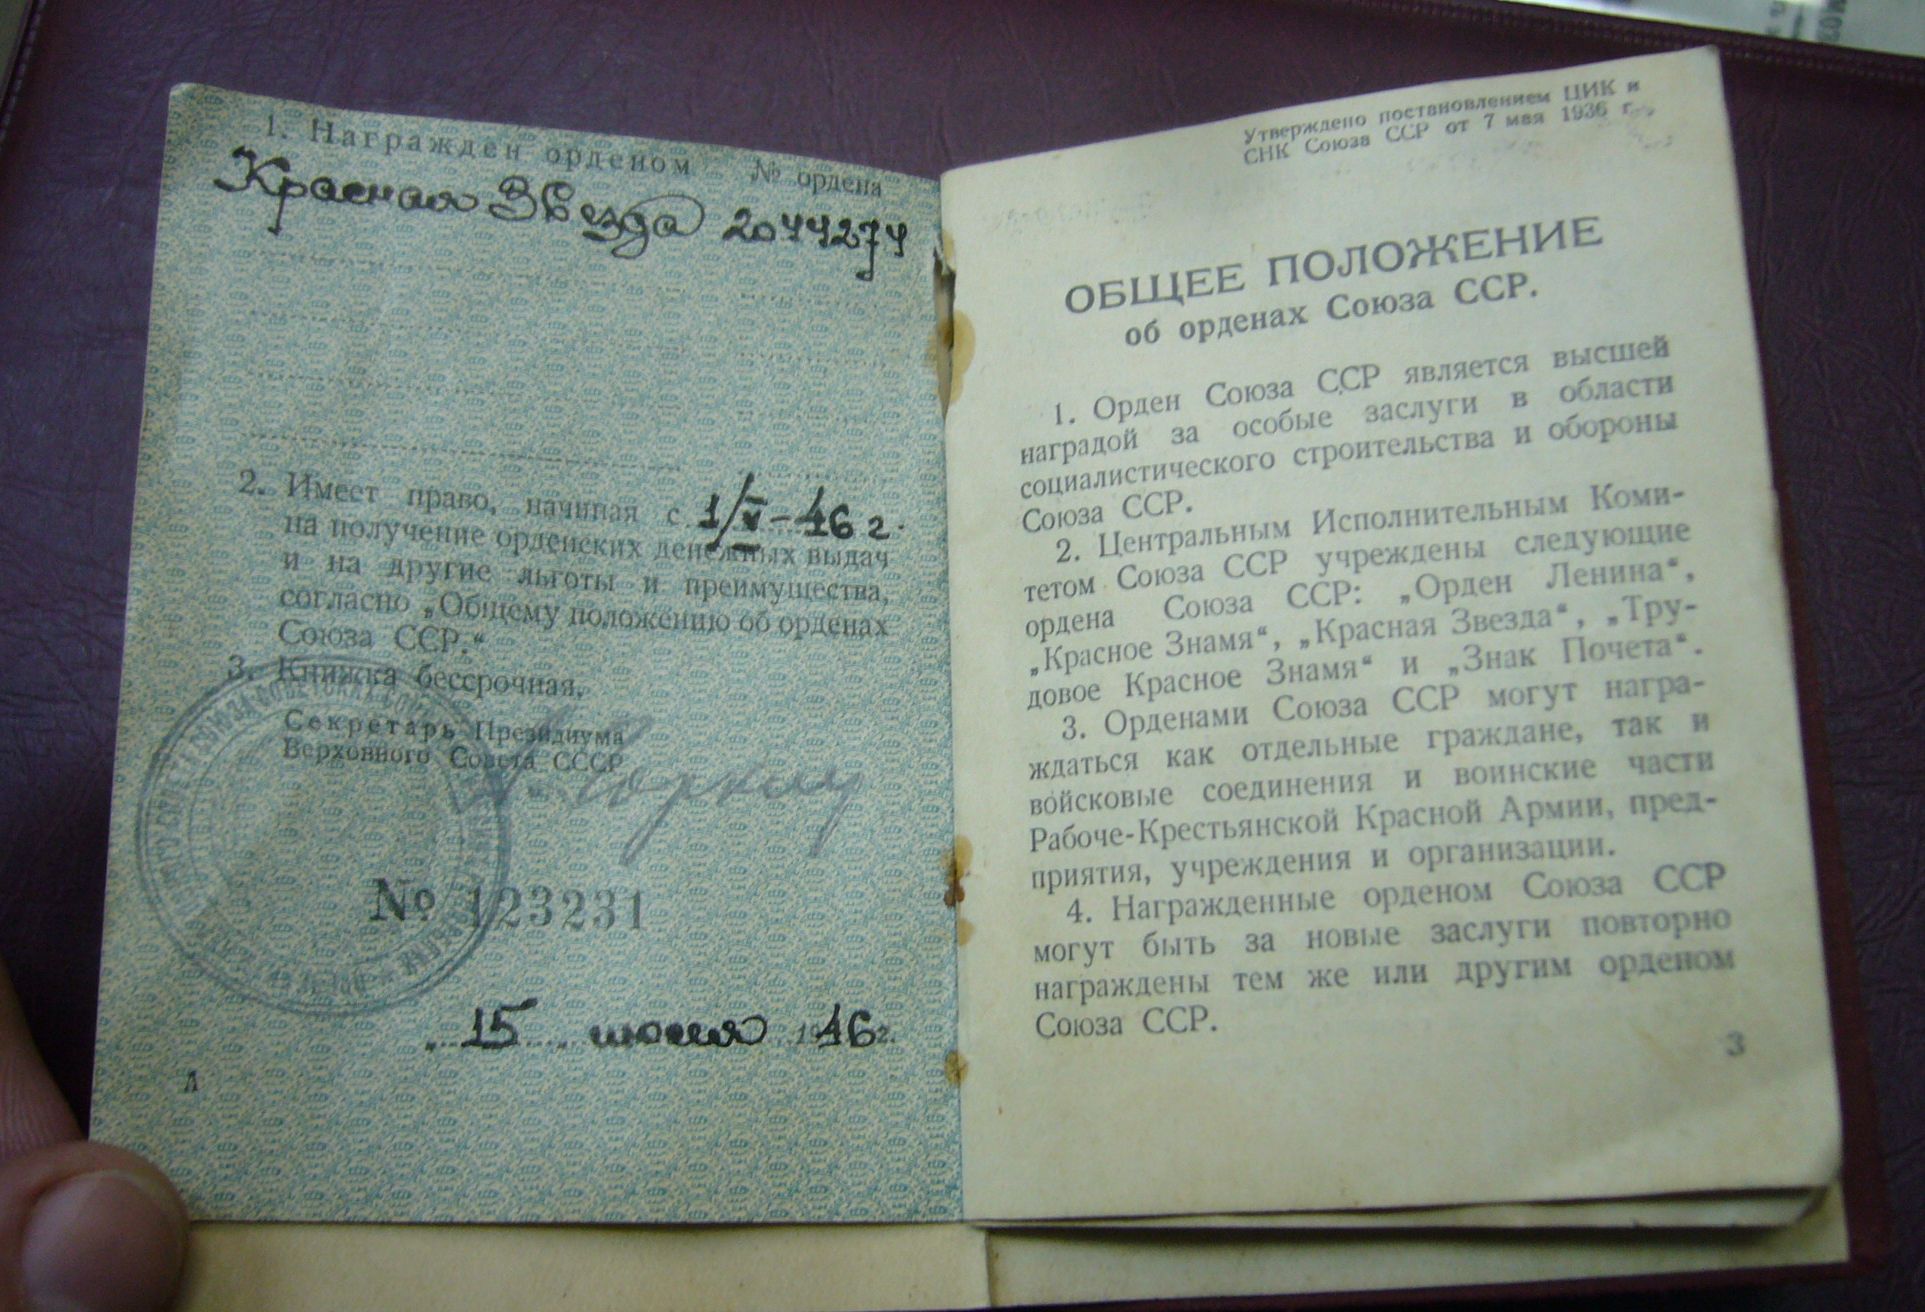 1. Награжден орденом № ордена
Красная Звезда 2044274
2. Имеет право, начиная с 1/V-46 г.
на получение орденских денежных выдач
и на другие льготы и преимущества,
согласно „Общему положению об орденах
Союза ССР.“
3. Книжка бессрочная.
Секретарь Президиума
Верховного Совета СССР
№ 123231
15 июня 1946 г.
А
Утверждено постановлением ЦИК и
СНК Союза ССР от 7 мая 1936 г.
ОБЩЕЕ ПОЛОЖЕНИЕ
об орденах Союза ССР.
1. Орден Союза ССР является высшей
наградой за особые заслуги в области
социалистического строительства и обороны
Союза ССР.
2. Центральным Исполнительным Коми-
тетом Союза ССР учреждены следующие
ордена Союза ССР: „Орден Ленина“,
„Красное Знамя“, „Красная Звезда“, „Тру-
довое Красное Знамя“ и „Знак Почета“.
3. Орденами Союза ССР могут награ-
ждаться как отдельные граждане, так и
войсковые соединения и воинские части
Рабоче-Крестьянской Красной Армии, пред-
приятия, учреждения и организации.
4. Награжденные орденом Союза ССР
могут быть за новые заслуги повторно
награждены тем же или другим орденом
Союза ССР.
3